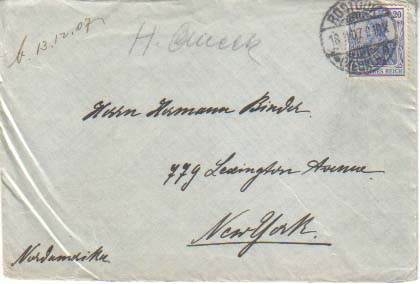 b. 13.12.07
H. Queck
ROSTOCK
20
DEUTSCHES REICH
Herrn Hermann Binder.
779 Lexington Avenue.
New York.
Nordamerika